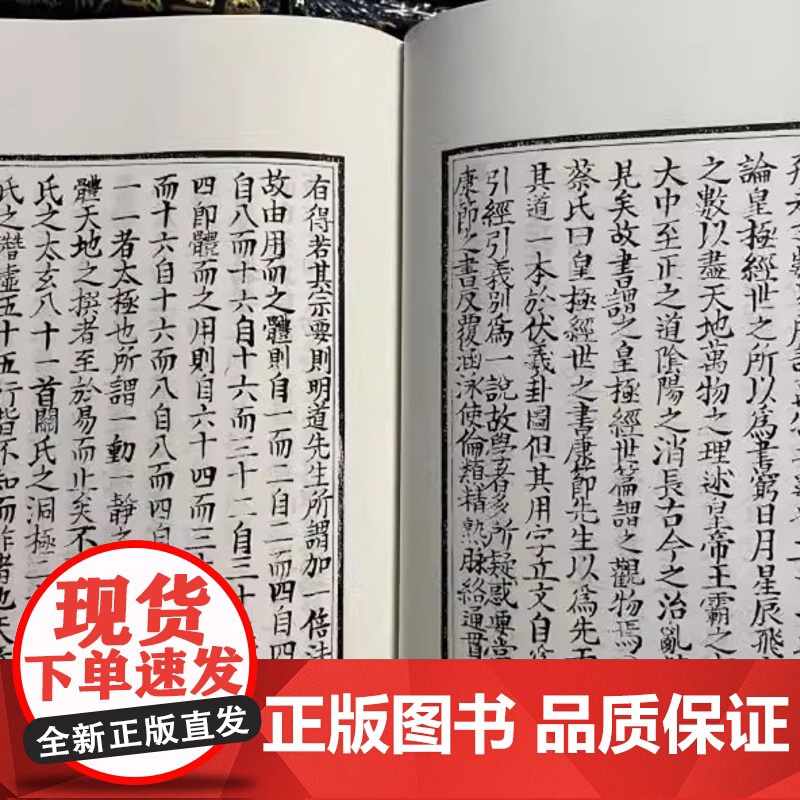 論皇極經世之所以爲書窮日月星辰飛
之數以盡天地萬物之理述皇帝王霸之
大中至正之道陰陽之消長古今之治亂
見矣故書謂之皇極經世篇謂之觀物焉
蔡氏曰皇極經世之書康節先生以爲先
其道一本於伏羲卦圖但其用字立文自
引經引義別爲一說故學者多所疑惑要當
康節之書反覆涵泳使倫類精熟脉絡通貫
有得若其宗要則明道先生所謂加一倍法
故由用而之體則自一而二自二而四自四
自八而十六自十六而三十二自三十
四即體而之用則自六十四而三十
而十六自十六而八自八而四自
一一者太極也所謂一動一靜之
體天地之撰者至於易而止矣不
氏之太玄八十一首關氏之洞極二
氏之潛虛五十五行皆不知而作者也天
现货
下单速发
全新正版直发
正版图书 品质保证